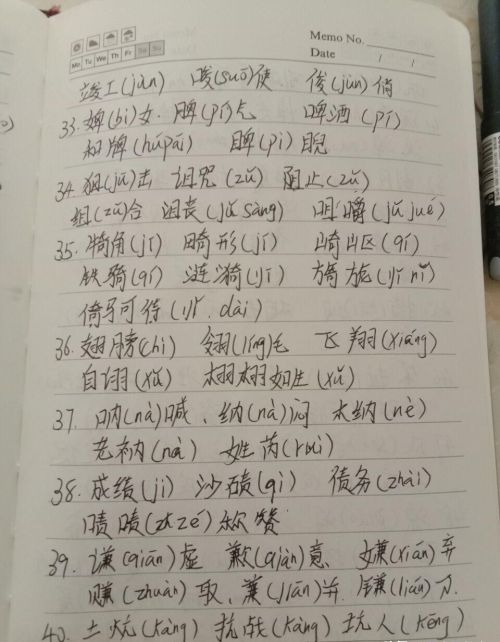 Memo No.
Mo Tu We Th Fr Sa Su
Date / /
竣工(jùn) 唆(suō)使 俊(jùn)俏
33. 婢(bì)女. 脾(pí)气 啤酒(pí)
和牌(húpái) 睥(pì)睨
34. 狙(jū)击 诅咒(zǔ) 阻止(zǔ)
组(zǔ)合 沮丧(jǔ sàng) 咀嚼(jǔ jué)
35. 犄角(jī) 畸形(jī) 崎岖(qí)
铁骑(qí) 涟漪(yī) 旖旎(yǐ nǐ)
倚马可待(yǐ. dài)
36. 翅膀(chì) 翎(líng)毛 飞翔(xiáng)
自诩(xǔ) 栩栩如生(xǔ)
37. 呐(nà)喊、纳(nà)闷 木讷(nè)
老衲(nà) 姓芮(ruì)
38. 成绩(jì) 沙碛(qì) 债务(zhài)
啧啧(zé zé)称赞
39. 谦(qiān)虚 歉(qiàn)意 嫌(xián)弃
赚(zhuàn)取、兼(jiān)并. 镰(lián)刀.
40. 土炕(kàng) 抗战(kàng) 坑人(kēng)